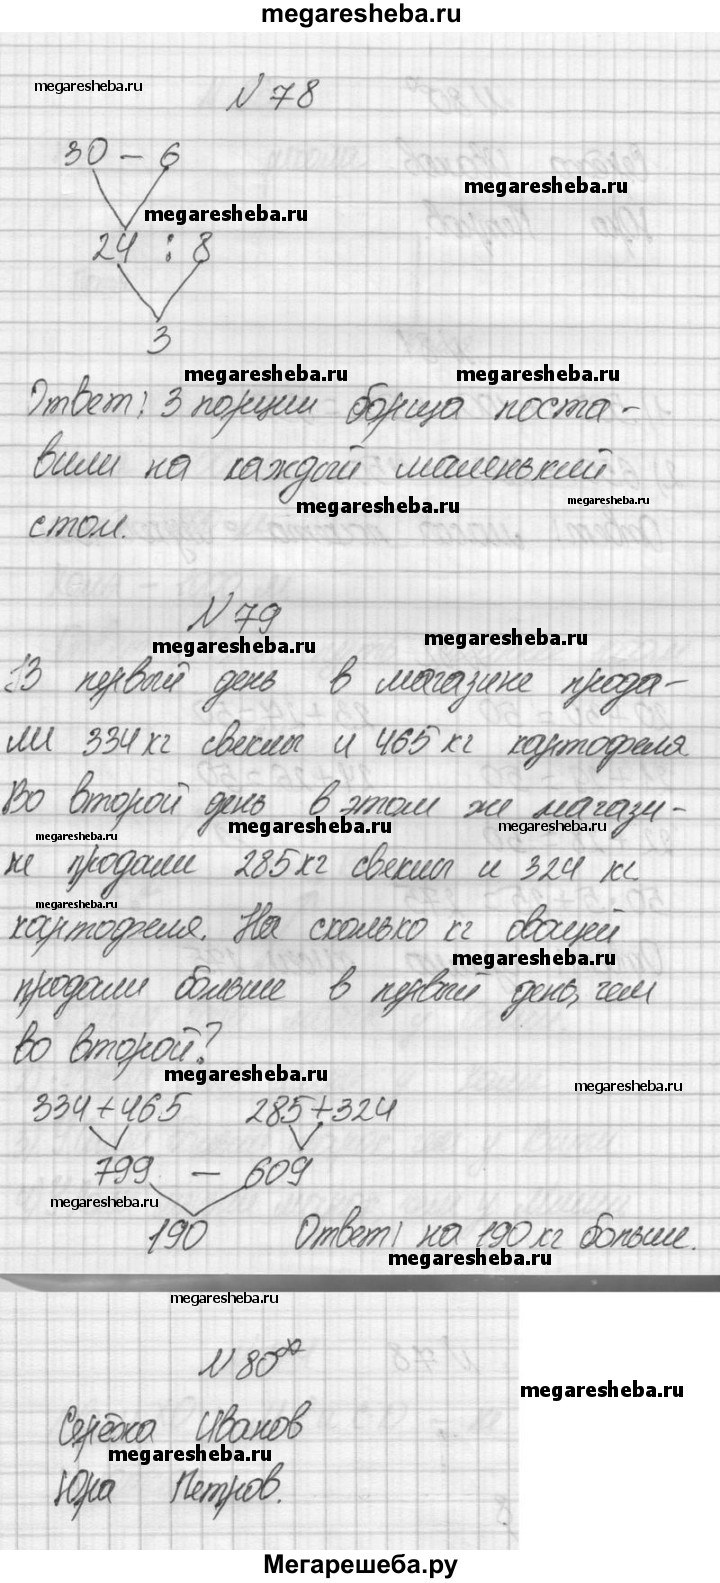 megaresheba.ru
megaresheba.ru
N 78
30 - 6
megaresheba.ru
megaresheba.ru
24 : 8
3
megaresheba.ru
megaresheba.ru
Ответ: 3 порции борща поста-
вили на каждый маленький
megaresheba.ru
megaresheba.ru
стол.
N 79
megaresheba.ru
megaresheba.ru
В первый день в магазине прода-
ли 334 кг свеклы и 465 кг картофеля
Во второй день в этом же магази-
megaresheba.ru
megaresheba.ru
megaresheba.ru
не продали 285 кг свеклы и 324 кг
megaresheba.ru
картофеля. На сколько кг овощей
megaresheba.ru
продали больше в первый день, чем
во второй?
megaresheba.ru
megaresheba.ru
334+465 285+324
799 - 609
megaresheba.ru
190 Ответ: на 190 кг больше.
megaresheba.ru
megaresheba.ru
N 80
megaresheba.ru
Серёжа Иванов
megaresheba.ru
Юра Петров.
Мегарешеба.ру